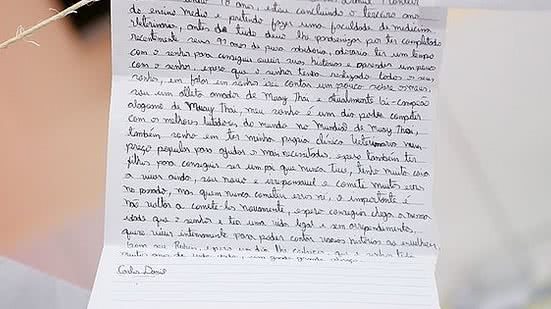 18 anos, estou concluindo o terceiro ano
do ensino médio e pretendo fazer uma faculdade de medicina
Veterinária, antes de tudo devo lhe parabenizar por ter completado
recentemente seus 97 anos de pura sabedoria, adoraria ter um tempo
com o senhor para conseguir ouvir suas histórias e aprender um pouco
com o senhor, espero que o senhor tenha realizado todos os seus
sonhos, em falar em sonho irei contar um pouco sobre os meus.
sou um atleta amador de Muay Thai e atualmente bi-campeão
alagoano de Muay Thai, meu sonho é um dia poder competir
com os melhores lutadores do mundo no Mundial de Muay Thai,
também sonho em ter minha própria clínica Veterinária num
preço popular para ajudar os mais necessitados, espero também ter
filhos para conseguir ser um pai que nunca tive, tenho muita coisa
a viver ainda, sou novo e irresponsável e cometi muitos erros
no passado, mas quem nunca cometeu erros né, o importante é
não voltar a comete-los novamente, espero conseguir chegar a mesma
idade que o senhor e ter uma vida legal e sem arrependimentos,
quero viver intensamente para poder contar várias histórias ao envelhecer,
bom seu Rubens, espero um dia lhe conhecer, que o senhor tenha
muitos anos de vida ainda, um grande abraço.
Carlos Daniel